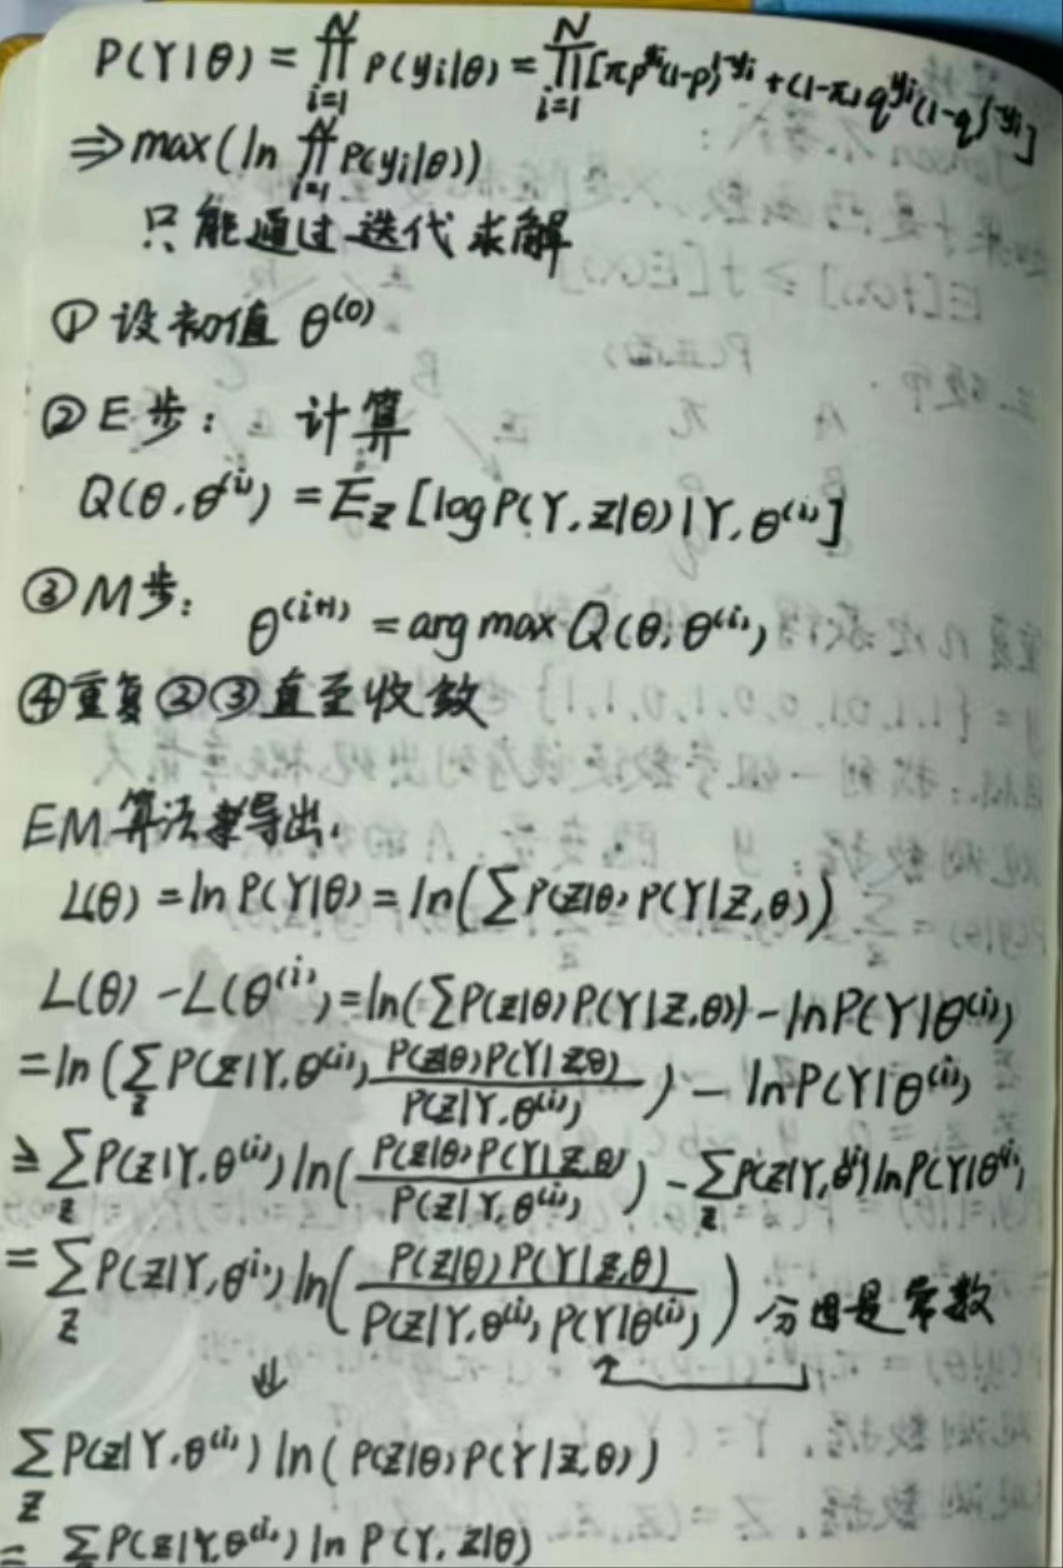 P(Y|θ) = ∏_{i=1}^{N} P(y_i|θ) = ∏_{i=1}^{N} [πp^{y_i}(1-p)^{1-y_i} + (1-π)q^{y_i}(1-q)^{1-y_i}]
⇒ max(ln ∏_{i=1}^{N} P(y_i|θ))
只能通过迭代求解
① 设初值 θ^{(0)}
② E步： 计算
Q(θ,θ^{(i)}) = E_Z[log P(Y,Z|θ)|Y,θ^{(i)}]
③ M步： θ^{(i+1)} = arg max Q(θ,θ^{(i)})
④ 重复②③直至收敛
EM算法推导出.
L(θ) = ln P(Y|θ) = ln(∑ P(Z|θ) P(Y|Z,θ))
L(θ) - L(θ^{(i)}) = ln(∑ P(Z|θ) P(Y|Z,θ)) - ln P(Y|θ^{(i)})
= ln(∑_Z P(Z|Y,θ^{(i)}) \frac{P(Z|θ)P(Y|Zθ)}{P(Z|Y,θ^{(i)})}) - ln P(Y|θ^{(i)})
≥ ∑_Z P(Z|Y,θ^{(i)}) ln(\frac{P(Z|θ)P(Y|Z,θ)}{P(Z|Y,θ^{(i)})}) - ∑_Z P(Z|Y,θ^{(i)}) ln P(Y|θ^{(i)})
= ∑_Z P(Z|Y,θ^{(i)}) ln(\frac{P(Z|θ)P(Y|Z,θ)}{P(Z|Y,θ^{(i)})P(Y|θ^{(i)})}) 分母是常数
⇓
∑_Z P(Z|Y,θ^{(i)}) ln(P(Z|θ)P(Y|Z,θ))
= ∑ P(Z|Y,θ^{(i)}) ln P(Y,Z|θ)